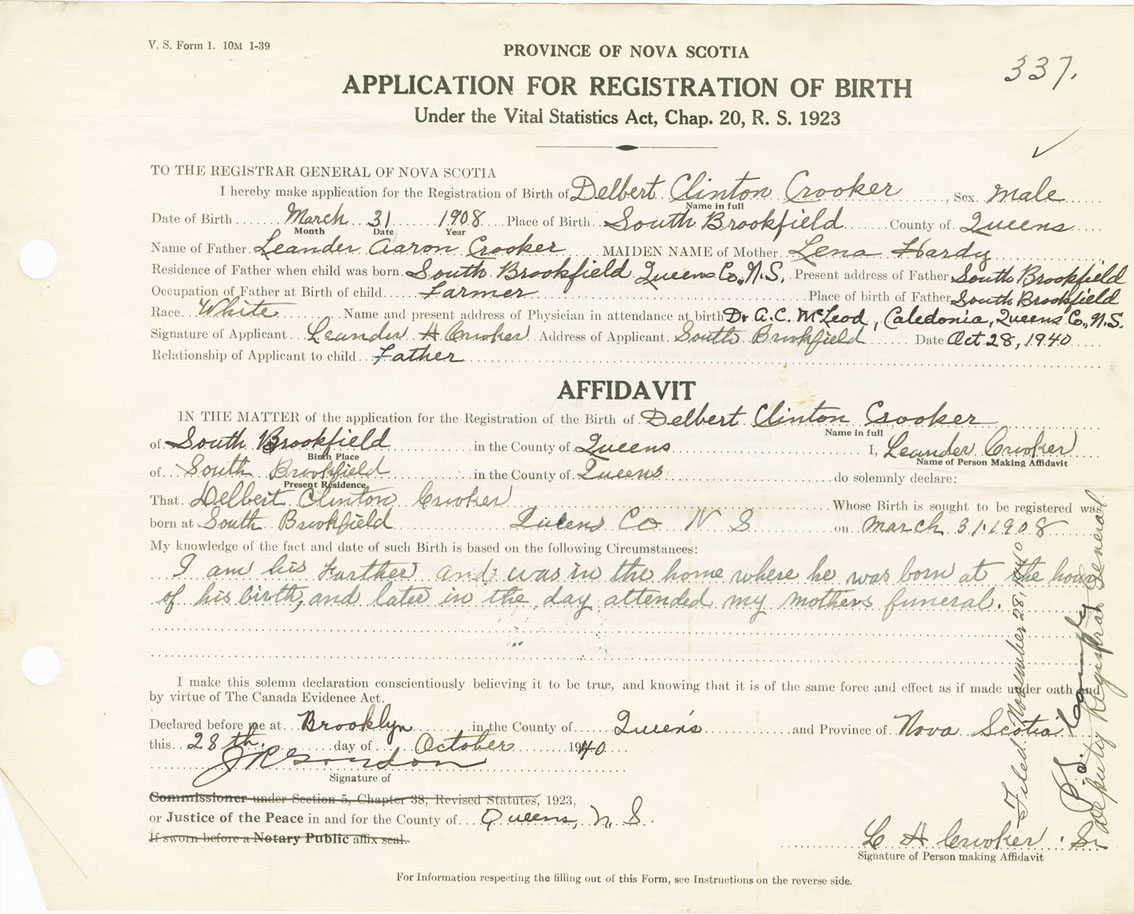 V. S. Form 1. 10M 1-39
PROVINCE OF NOVA SCOTIA
337.
APPLICATION FOR REGISTRATION OF BIRTH
Under the Vital Statistics Act, Chap. 20, R. S. 1923
TO THE REGISTRAR GENERAL OF NOVA SCOTIA
I hereby make application for the Registration of Birth of Delbert Clinton Crooker, Sex male
Name in full
Date of Birth March 31 1908 Place of Birth South Brookfield County of Queens
Month Date Year
Name of Father Leander Aaron Crooker MAIDEN NAME of Mother Lena Hardy
Residence of Father when child was born. South Brookfield Queens Co., N.S. Present address of Father South Brookfield
Occupation of Father at Birth of child Farmer Place of birth of Father South Brookfield
Race White Name and present address of Physician in attendance at birth Dr A.C. McLeod, Caledonia, Queens Co., N.S.
Signature of Applicant Leander H Crooker Address of Applicant South Brookfield Date Oct 28, 1940
Relationship of Applicant to child Father
AFFIDAVIT
IN THE MATTER of the application for the Registration of the Birth of Delbert Clinton Crooker
Name in full
of South Brookfield in the County of Queens I, Leander Crooker
Birth Place Name of Person Making Affidavit
of South Brookfield in the County of Queens do solemnly declare:
Present Residence
That Delbert Clinton Crooker Whose Birth is sought to be registered was
born at South Brookfield Queens Co N S on March 31. 1908
My knowledge of the fact and date of such Birth is based on the following Circumstances:
I am his Farther and was in the home where he was born at the hour
of his birth, and later in the day attended my mothers funeral.
I make this solemn declaration conscientiously believing it to be true, and knowing that it is of the same force and effect as if made under oath and
by virtue of The Canada Evidence Act.
Declared before me at Brooklyn in the County of Queens and Province of Nova Scotia
this 28th. day of October 1940
Signature of
Commissioner under Section 5, Chapter 38, Revised Statutes, 1923,
or Justice of the Peace in and for the County of Queens, N. S.
If sworn before a Notary Public affix seal.
L H Crooker Sr
Signature of Person making Affidavit
Filed November 28, 1940
Deputy Registrar General
For Information respecting the filling out of this Form, see Instructions on the reverse side.